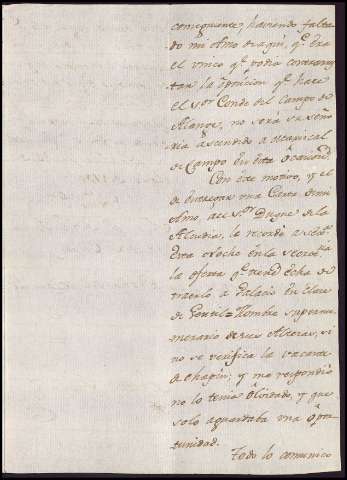 conseguiente, haviendo falta-
do mi olmo de aquí, q.e era
el unico q.e podia contrarres-
tar la oposicion q.e hace
el s.or Conde del Campo de
Alange, no será su seño-
ria ascendido a Mariscal
de Campo en esta ocasion.
Con este motivo, y el
de entregar una Carta de mi
olmo, al s.or Duque de la
Alcudia, le recordé a
esta noche en la secret.ria
la oferta q.e tiene hecha de
traerlo à Palacio en clase
de Gentil=Hombre supernu-
merario de sus Altezas, si
no se verifica la vacante
de Chapin; y me respondió
no lo tenia olvidado, y que
solo aguardaba una opor-
tunidad.
Todo lo comunico